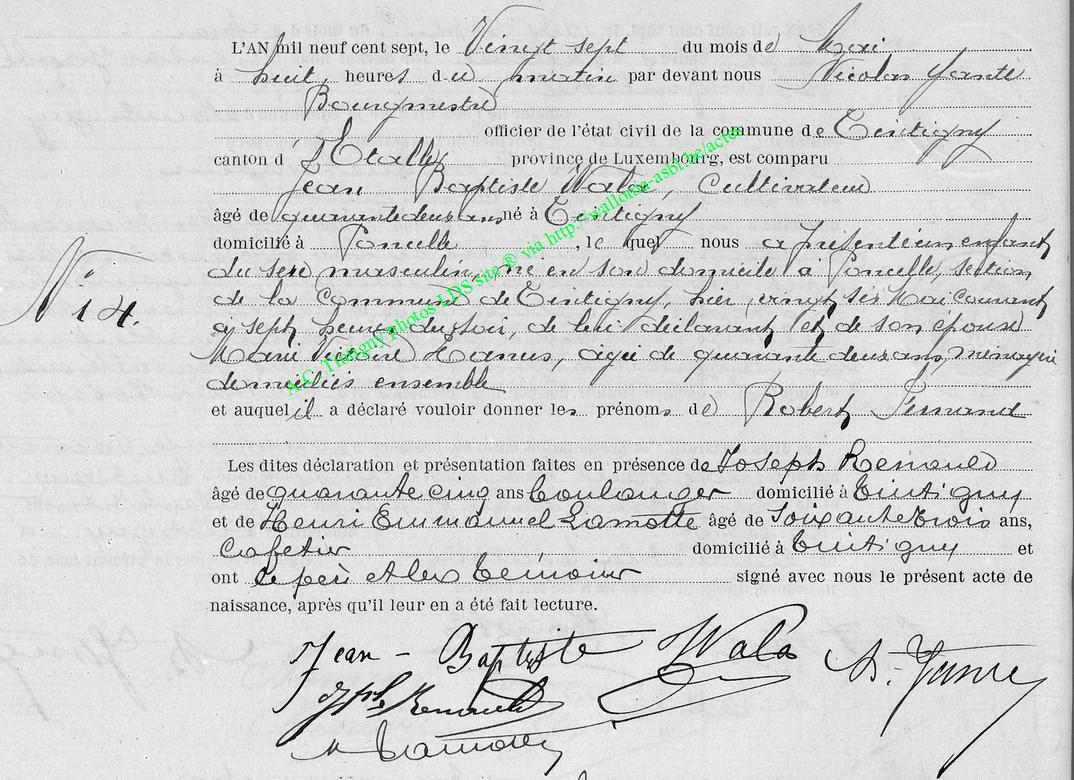 L'AN mil neuf cent sept, le Vingt sept du mois de Mai
à huit, heures du matin par devant nous Nicolas
Bourgmestre
officier de l'état civil de la commune de Tintigny
canton d'Etalle province de Luxembourg, est comparu
Jean Baptiste Wala, Cultivateur
âgé de quarante deux ans né à Tintigny
domicilié à Poncelle, le quel nous a présenté un enfant
du sexe masculin, né en son domicile à Poncelle, section
de la Commune de Tintigny, hier, vingt six Mai courant
à sept heures du soir, de lui déclarant et de son épouse
Marie Victoire Hanus, agée de quarante deux ans, ménagère
domiciliés ensemble
N° 14.
et auquel il a déclaré vouloir donner les prénoms de Robert Fernand
Les dites déclaration et présentation faites en présence de Joseph Renauld
âgé de quarante cinq ans boulanger domicilié à Tintigny
et de Henri Emmanuel Lamotte âgé de Soixante trois ans,
Cafetier domicilié à Tintigny et
ont le père et les témoins signé avec nous le présent acte de
naissance, après qu'il leur en a été fait lecture.
Jean - Baptiste Wala
Jph Renauld
Lamotte
A.C. Tintigny photos LDS site ® via http://wallonia-asbl.be/actes